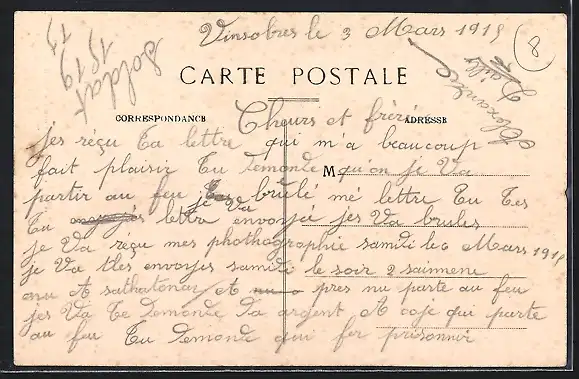 Vinsobres le 3 Mars 1919
8
Soldat
1919
CARTE POSTALE
CORRESPONDANCE
ADRESSE
M
Cheurs et frére
jes réçu ta lettre qui m'a beaucoup
fait plaisir tu demonde qu'on je va
partir au feu je brulé mé lettre tu tes
tu lettre envonjé jes va brules
je va réçu mes phothographie samdi le 6 Mars 1919
je va tles envojes samdi le soir 2 sainnene
A pres nu parte au feu
jes va te demonde da argent A coje qui parte
au feu tu demonde qui fer prisonnir